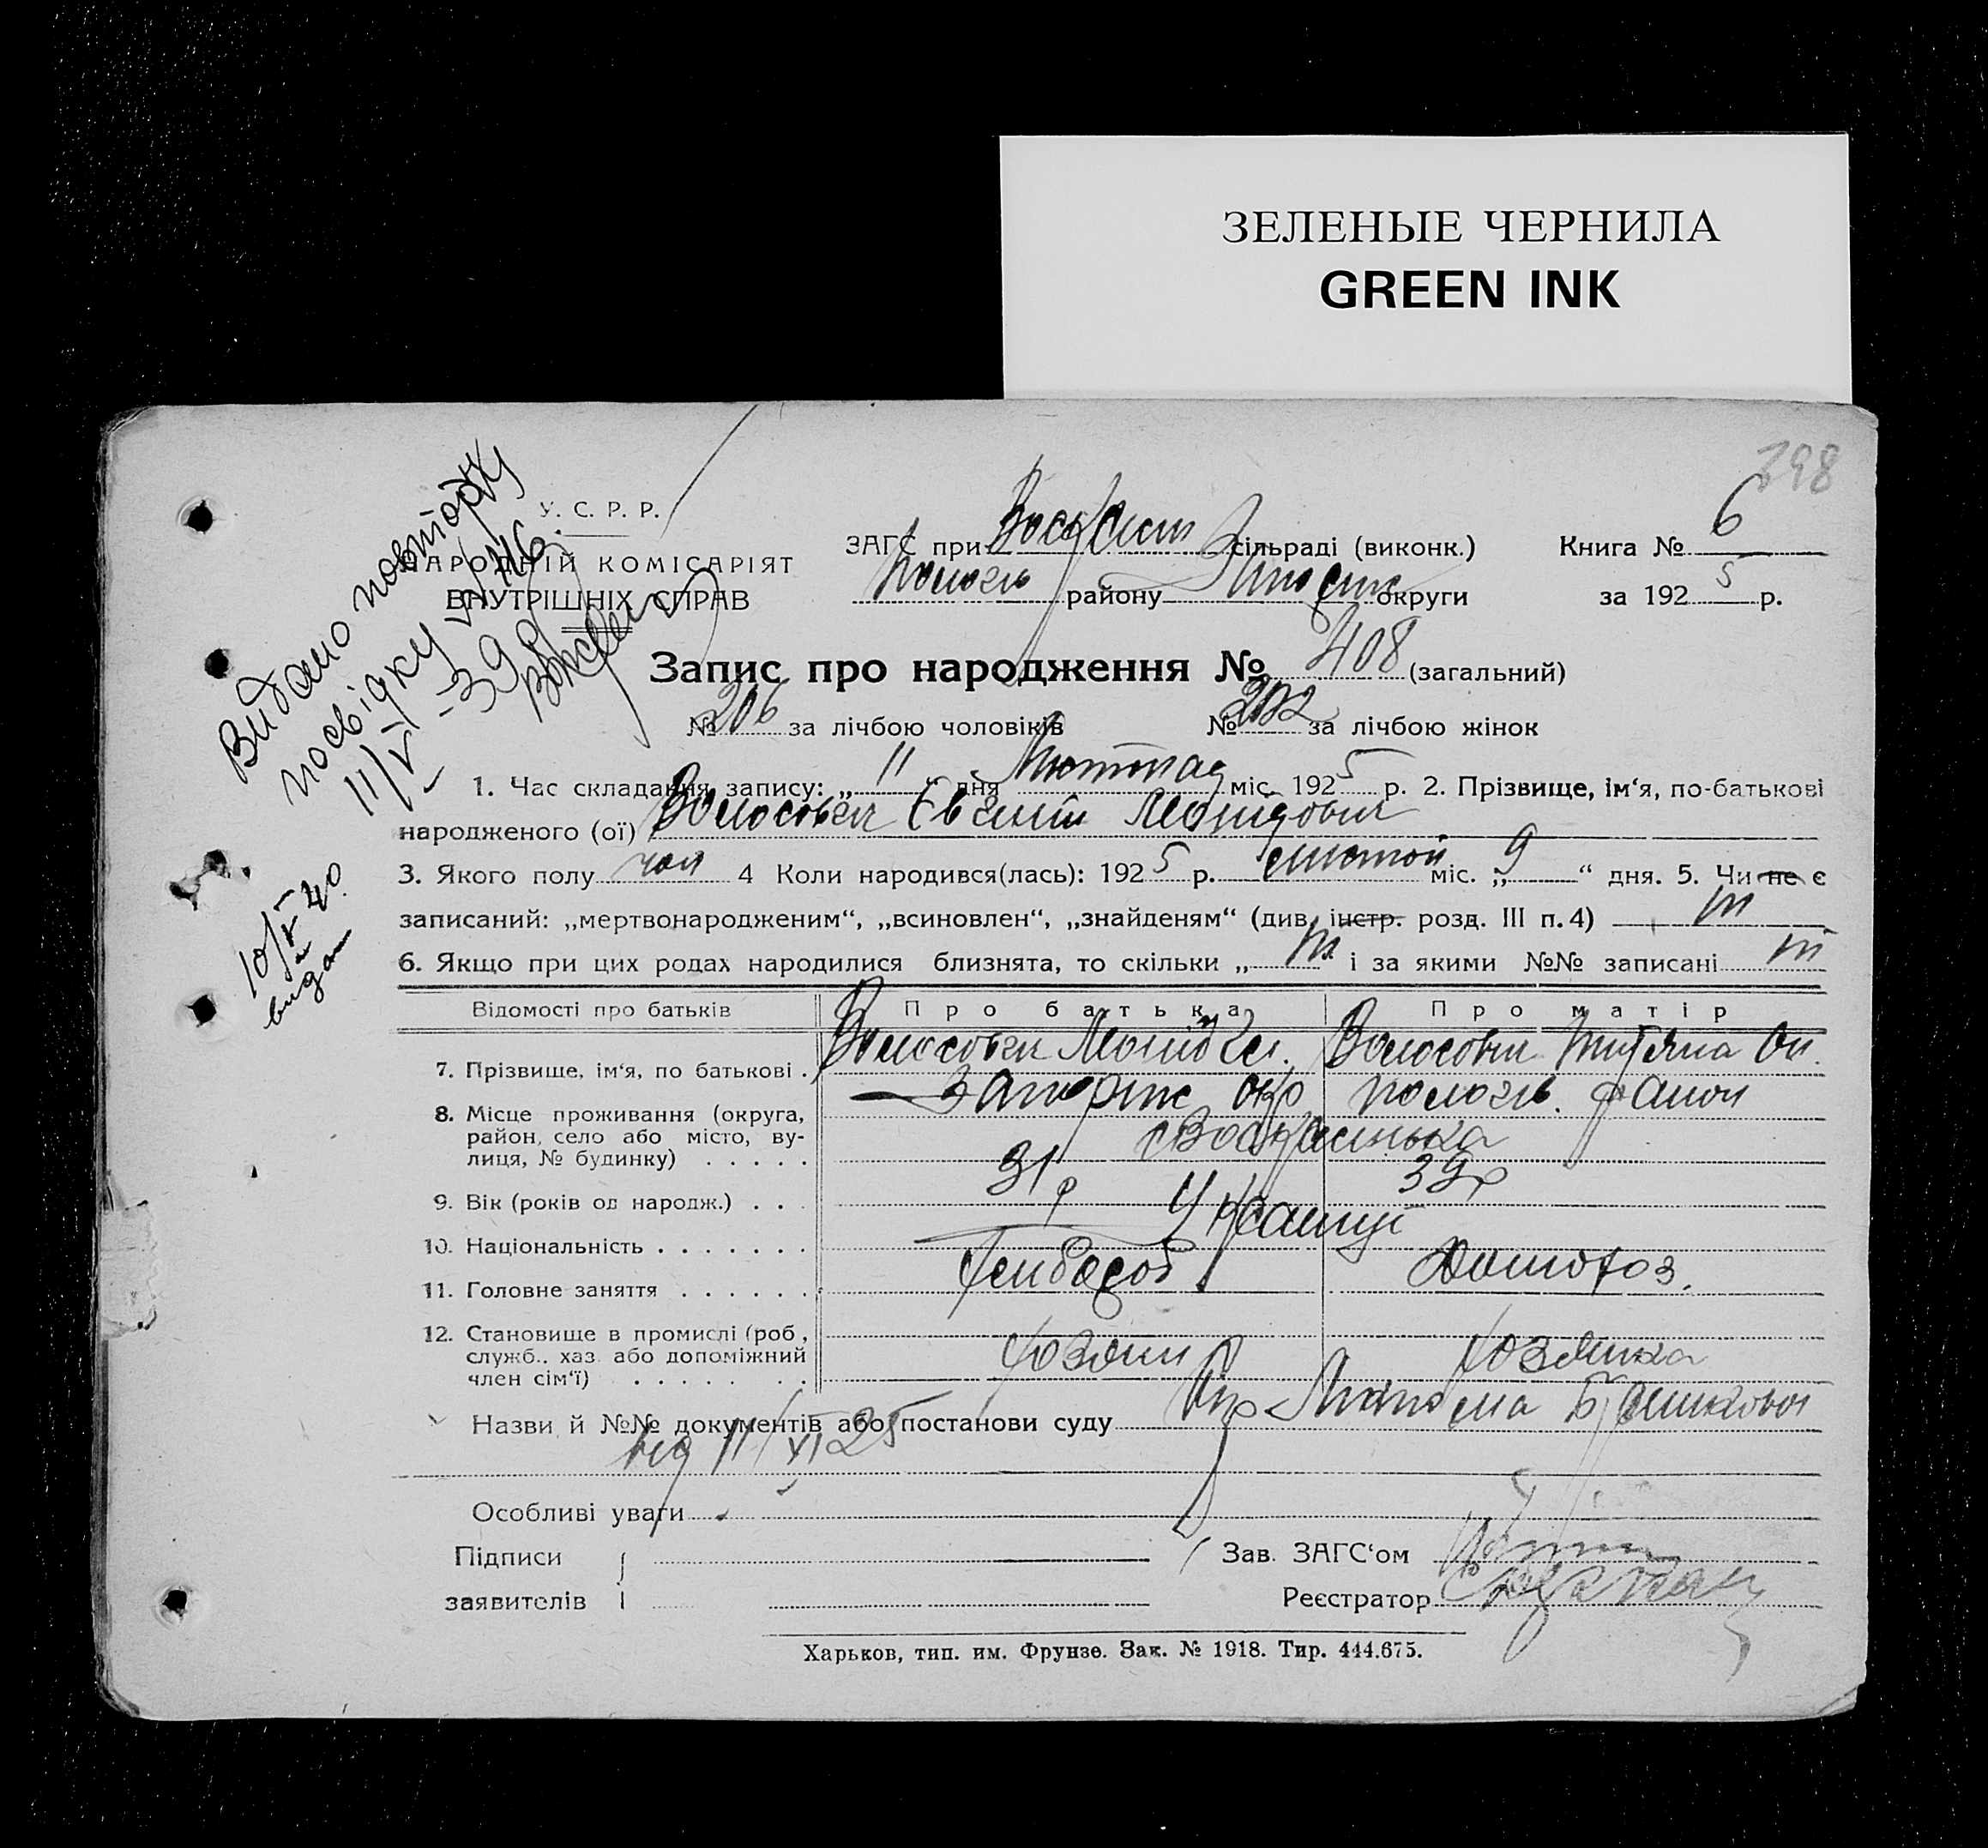 ЗЕЛЕНЫЕ ЧЕРНИЛА
GREEN INK
398
Видано повторну
посвідку
11/V -39
10/V 40
видан
У. С. Р. Р.
НАРОДНІЙ КОМІСАРІЯТ
ВНУТРІШНІХ СПРАВ
ЗАГС при Воскрисен сільраді (виконк.) Книга № 6
Пологів району округи за 1925 р.
Запис про народження № 408 (загальний)
№ 206 за лічбою чоловіків № 202 за лічбою жінок
1. Час складання запису: „ 11 “ дня Листопад міс. 1925 р. 2. Прізвище, ім‘я, по-батькові
народженого (ої) Волосовен Євгеній Леонідович
3. Якого полу чол 4 Коли народився(лась): 1925 р. листоп міс. „ 9 “ дня. 5. Чи не є
записаний: „мертвонародженим“, „всиновлен“, „знайденям“ (див. інстр. розд. III п. 4)
6. Якщо при цих родах народилися близнята, то скільки „ і за якими №№ записані
Відомості про батьків Про батька Про матір
7. Прізвище, ім‘я, по батькові . Волосовен Леонід Волосовен
8. Місце проживання (округа, Запоріж окр пологів. район
район, село або місто, ву-
лиця, № будинку) . . . . .
9. Вік (років од народж.) . . . 31 р 39р
10. Національність . . . . . . . Українці
11. Головне заняття . . . . . . Хлібороб Домохоз.
12. Становище в промислі (роб,
служб., хаз. або допоміжний Хозяин Хозяйка
член сім‘ї) . . . . . . .
Назви й №№ документів або постанови суду
від 11/XI 25
Особливі уваги
Підписи Зав. ЗАГС‘ом
заявителів Реєстратор
Харьков, тип. им. Фрунзе. Зак. № 1918. Тир. 444.675.